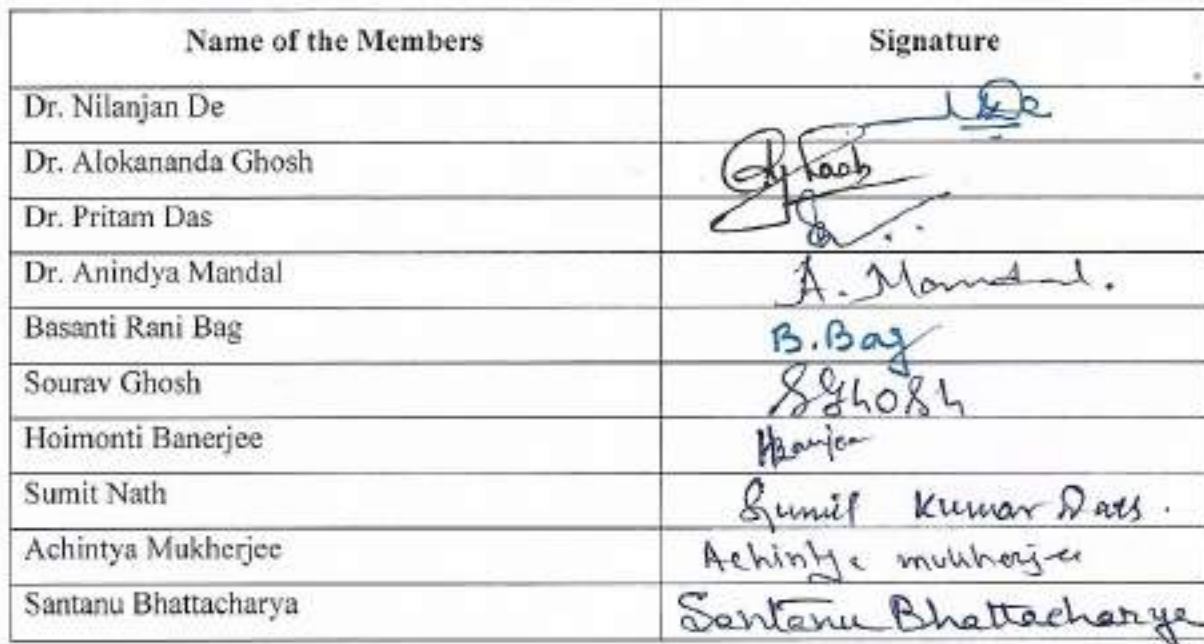 Name of the Members Signature
Dr. Nilanjan De De
Dr. Alokananda Ghosh
Dr. Pritam Das
Dr. Anindya Mandal A. Mandal.
Basanti Rani Bag B. Bag
Sourav Ghosh SGhosh
Hoimonti Banerjee HBanerjee
Sumit Nath Sumit Kumar
Achintya Mukherjee Achintya mukherjee
Santanu Bhattacharya Santanu Bhattacharya